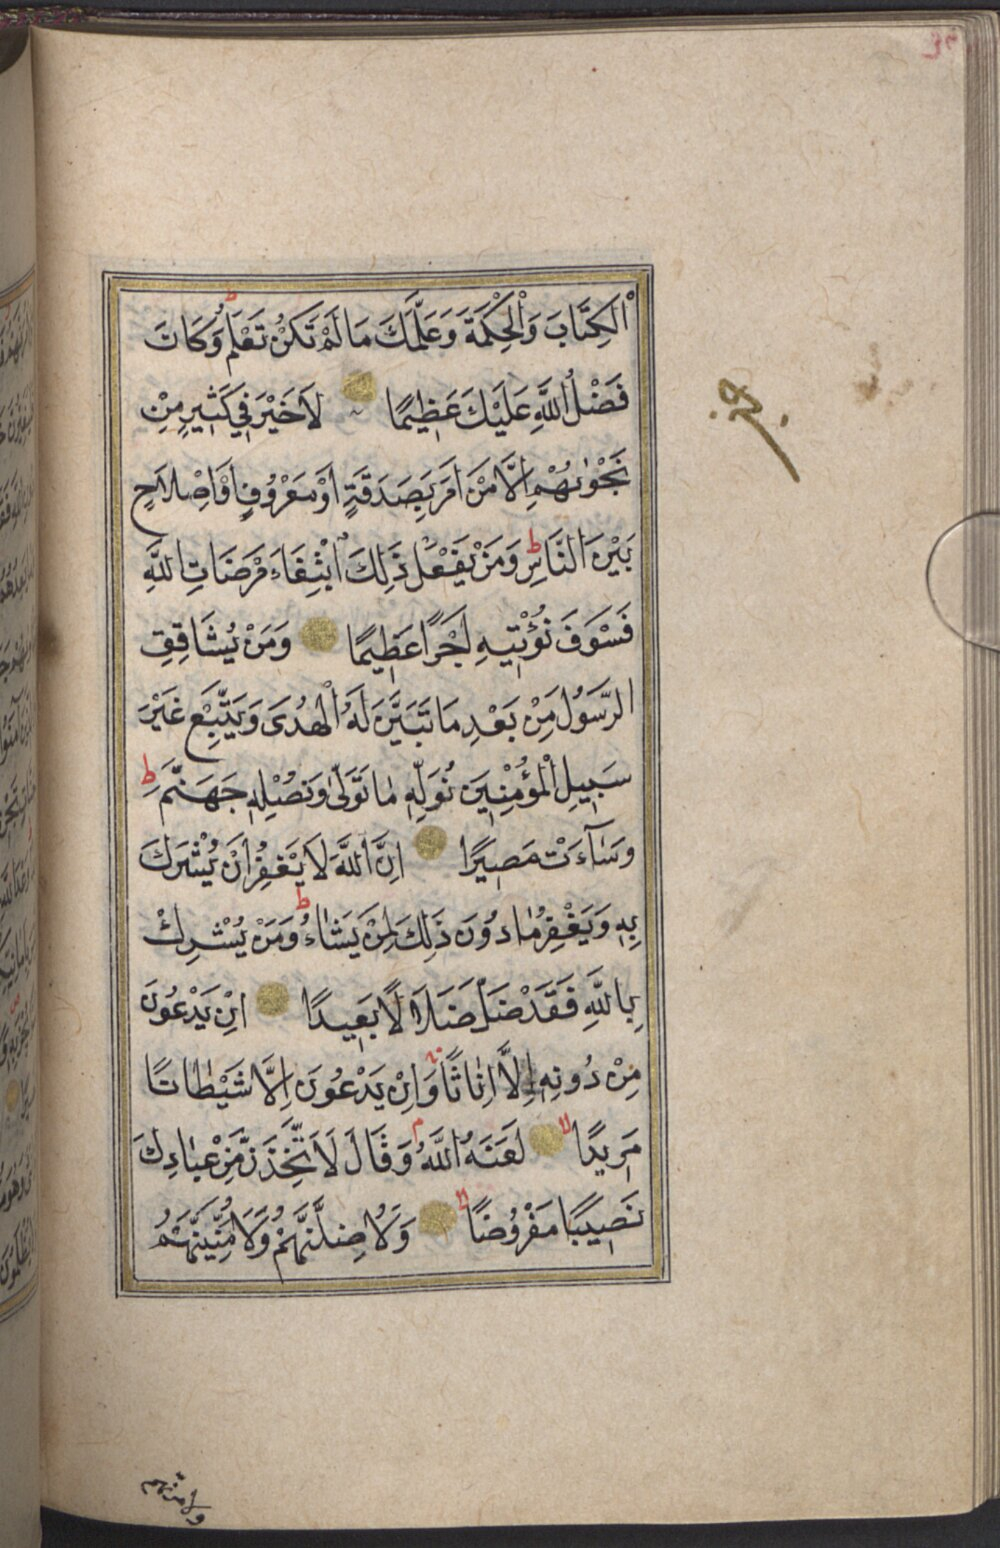 الْكِتَابَ وَالْحِكْمَةَ وَعَلَّمَكَ مَا لَمْ تَكُنْ تَعْلَمُ ط وَكَانَ
فَضْلُ اللَّهِ عَلَيْكَ عَظِيمًا لَا خَيْرَ فِي كَثِيرٍ مِنْ
نَجْوٰيهُمْ اِلَّا مَنْ اَمَرَ بِصَدَقَةٍ اَوْ مَعْرُوفٍ اَوْ اِصْلَاحٍ
بَيْنَ النَّاسِ ط وَمَنْ يَفْعَلْ ذَلِكَ ابْتِغَاءَ مَرْضَاتِ اللَّهِ
فَسَوْفَ نُؤْتِيهِ اَجْرًا عَظِيمًا وَمَنْ يُشَاقِقِ
الرَّسُولَ مِنْ بَعْدِ مَا تَبَيَّنَ لَهُ الْهُدَى وَيَتَّبِعْ غَيْرَ
سَبِيلِ الْمُؤْمِنِينَ نُوَلِّهِ مَا تَوَلّٰى وَنُصْلِهِ جَهَنَّمَ ط
وَسَآءَتْ مَصِيرًا اِنَّ اللَّهَ لَا يَغْفِرُ اَنْ يُشْرَكَ
بِهِ وَيَغْفِرُ مَا دُونَ ذَلِكَ لِمَنْ يَشَاءُ ط وَمَنْ يُشْرِكْ
بِاللَّهِ فَقَدْ ضَلَّ ضَلَالًا بَعِيدًا اِنْ يَدْعُونَ
مِنْ دُونِهِ اِلَّا اِنَاثًا وَاِنْ يَدْعُونَ اِلَّا شَيْطَانًا
مَرِيدًا لا لَعَنَهُ اللَّهُ م وَقَالَ لَاَتَّخِذَنَّ مِنْ عِبَادِكَ
نَصِيبًا مَفْرُوضًا لا وَلَاُضِلَّنَّهُمْ وَلَاُمَنِّيَنَّهُمْ
ولامرنهم